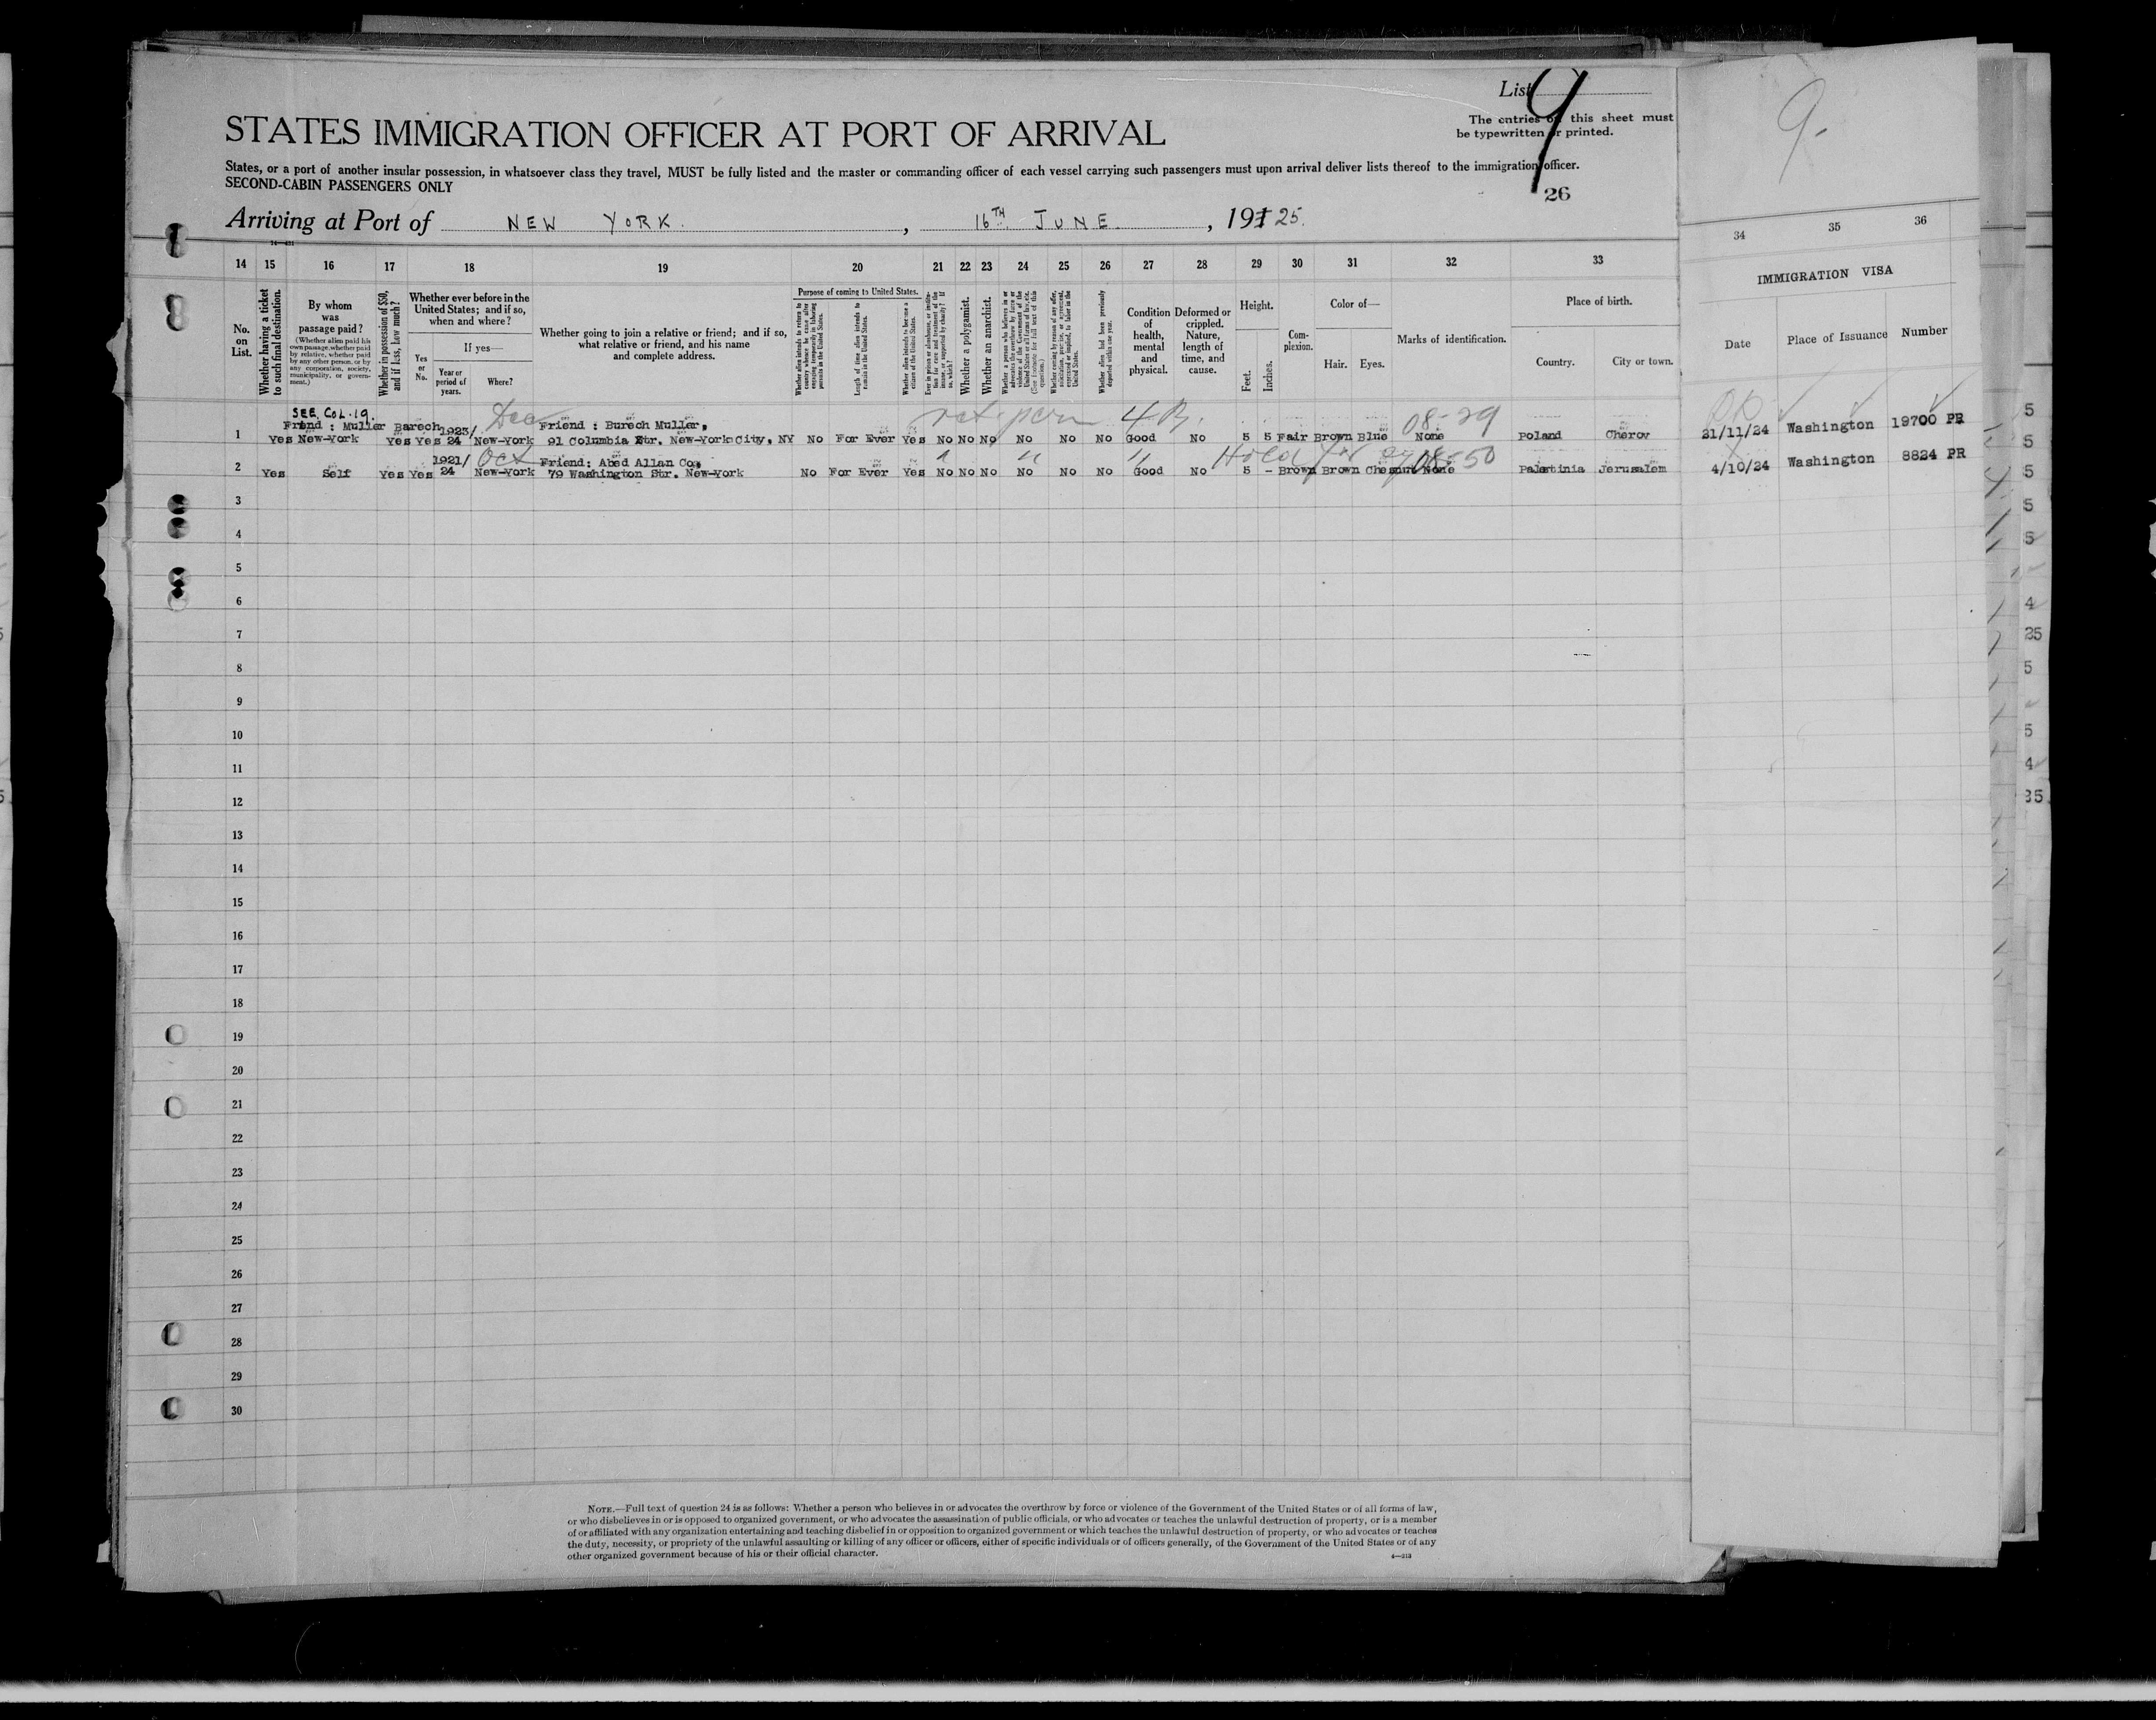 List 9
The entries on this sheet must
be typewritten or printed.
9-
STATES IMMIGRATION OFFICER AT PORT OF ARRIVAL
States, or a port of another insular possession, in whatsoever class they travel, MUST be fully listed and the master or commanding officer of each vessel carrying such passengers must upon arrival deliver lists thereof to the immigration officer.
SECOND-CABIN PASSENGERS ONLY
26
Arriving at Port of NEW YORK. , 16TH JUNE , 191 25.
14 15 16 17 18 19 20 21 22 23 24 25 26 27 28 29 30 31 32 33 34 35 36
No. on List.
Whether having a ticket to such final destination.
By whom was passage paid?
(Whether alien paid his own passage, whether paid by relative, whether paid by any other person, or by any corporation, society, municipality, or government.)
Whether in possession of $50, and if less, how much?
Whether ever before in the United States; and if so, when and where?
Yes or No.
If yes—
Year or period of years.
Where?
Whether going to join a relative or friend; and if so, what relative or friend, and his name and complete address.
Purpose of coming to United States.
Length of time alien intends to remain in the United States.
Whether alien intends to become a citizen of the United States.
Whether a polygamist.
Whether an anarchist.
Whether alien had been previously deported within one year.
Condition of health, mental and physical.
Deformed or crippled. Nature, length of time, and cause.
Height.
Feet. Inches.
Complexion.
Color of—
Hair. Eyes.
Marks of identification.
Place of birth.
Country. City or town.
IMMIGRATION VISA
Date Place of Issuance Number
SEE COL. 19. Dec 4 B. 08-29
Friend : Muller Barech 1923/ Friend : Burech Muller,
1 Yes New-York Yes Yes 24 New-York 91 Columbia Str. New-York City, NY No For Ever Yes No No No No No No Good No 5 5 Fair Brown Blue None Poland Cherov 21/11/24 Washington 19700 PR
1921/ Oct Friend: Abed Allan Co, 08-50
2 Yes Self Yes Yes 24 New-York 79 Washington Str. New-York No For Ever Yes No No No No No No Good No 5 - Brown Brown Chesnut None Palestinia Jerusalem 4/10/24 Washington 8824 PR
3
4
5
6
7
8
9
10
11
12
13
14
15
16
17
18
19
20
21
22
23
24
25
26
27
28
29
30
NOTE.—Full text of question 24 is as follows: Whether a person who believes in or advocates the overthrow by force or violence of the Government of the United States or of all forms of law,
or who disbelieves in or is opposed to organized government, or who advocates the assassination of public officials, or who advocates or teaches the unlawful destruction of property, or is a member
of or affiliated with any organization entertaining and teaching disbelief in or opposition to organized government or which teaches the unlawful destruction of property, or who advocates or teaches
the duty, necessity, or propriety of the unlawful assaulting or killing of any officer or officers, either of specific individuals or of officers generally, of the Government of the United States or of any
other organized government because of his or their official character.